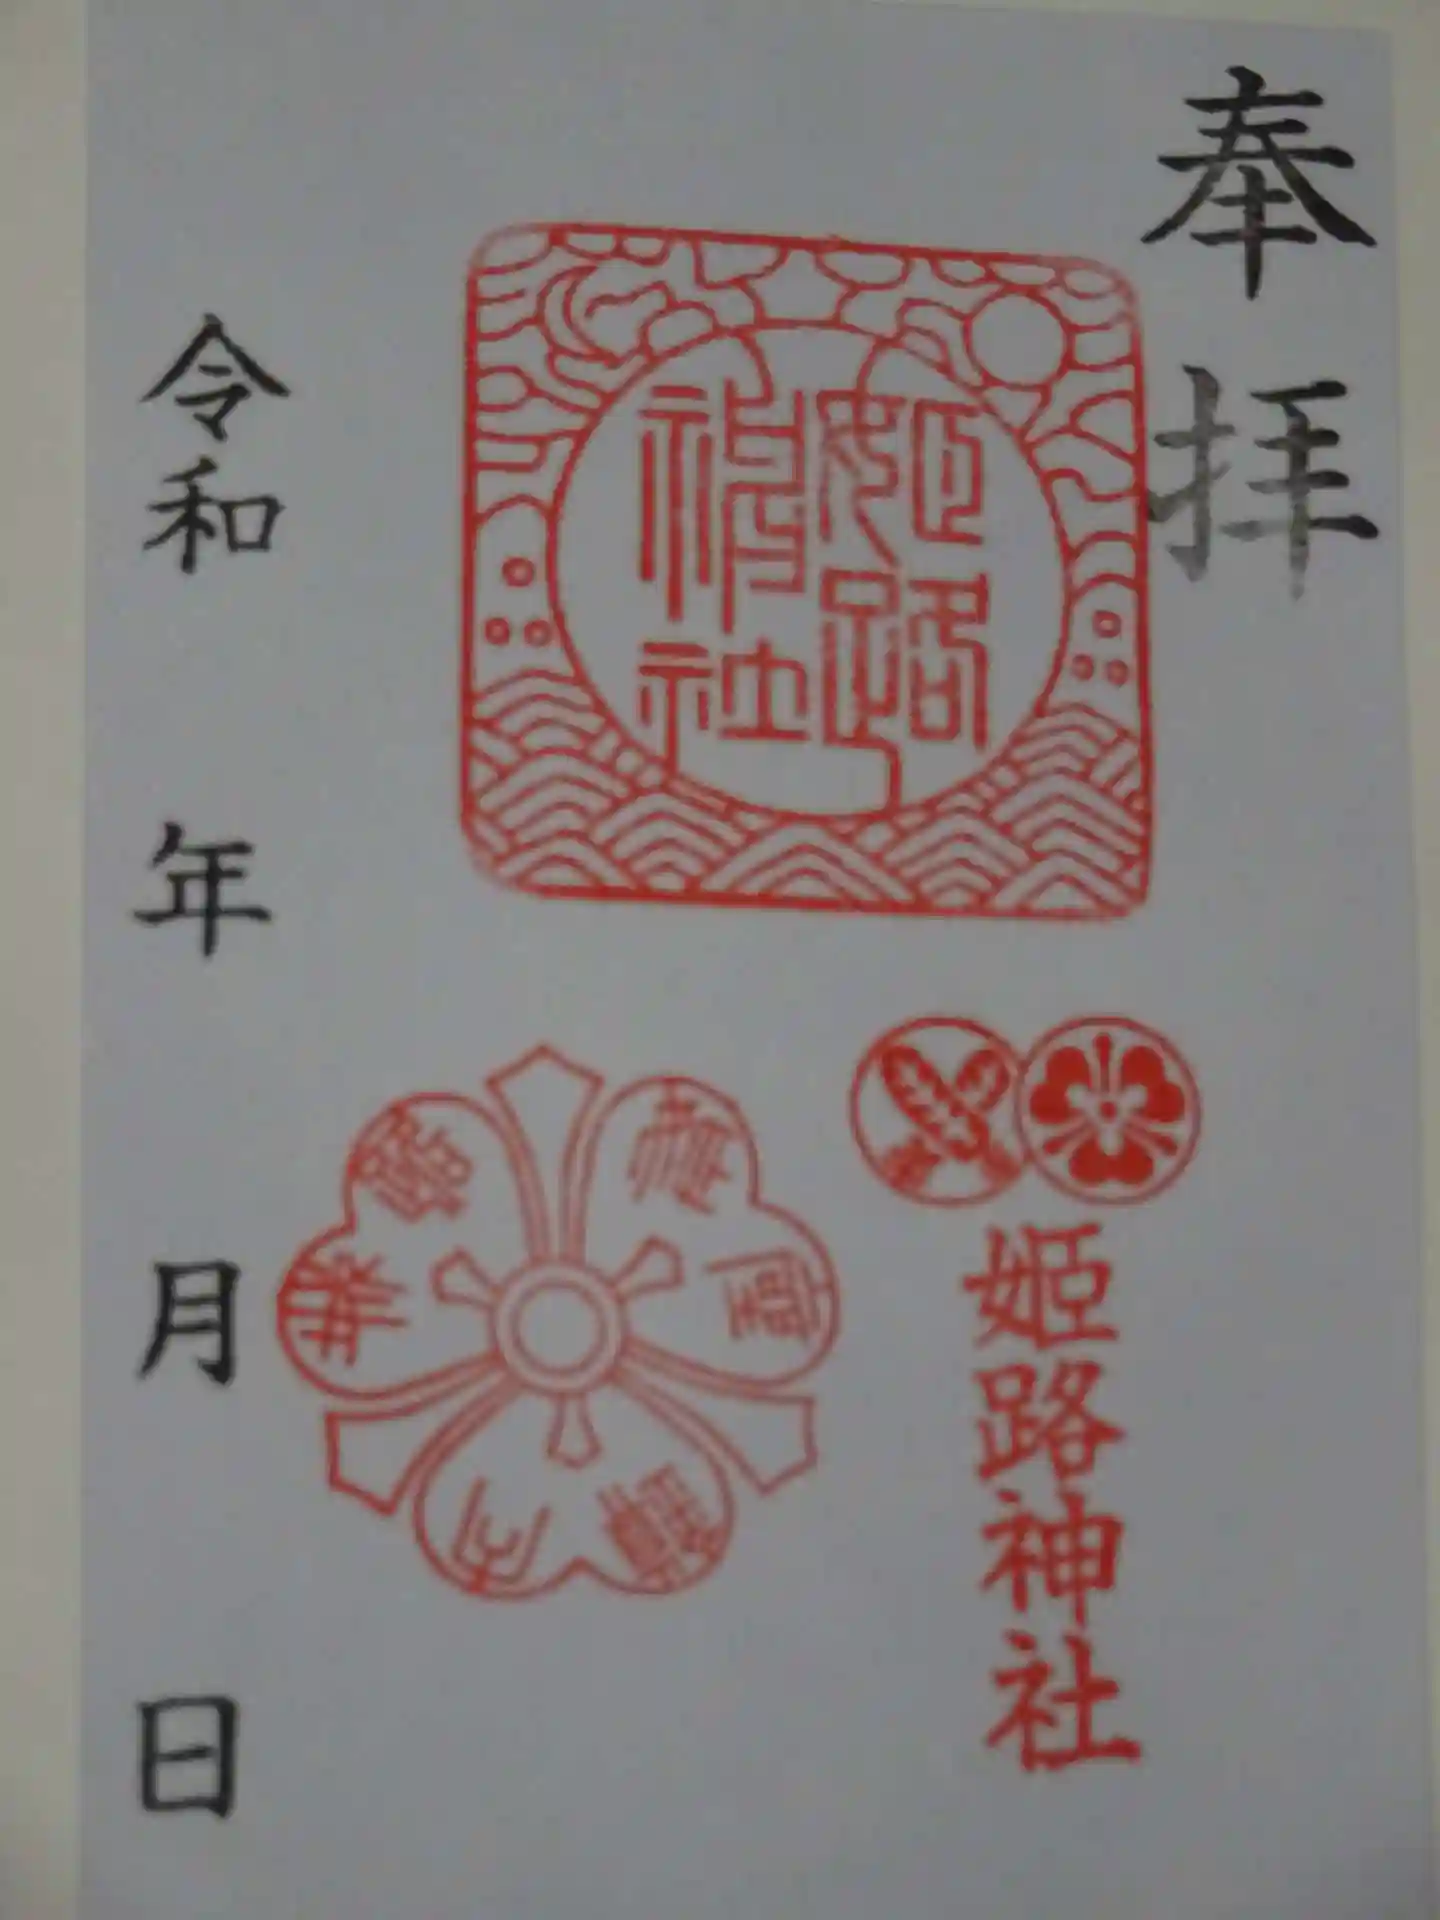 奉拝
姫路神社
姫路神社
令和 年 月 日